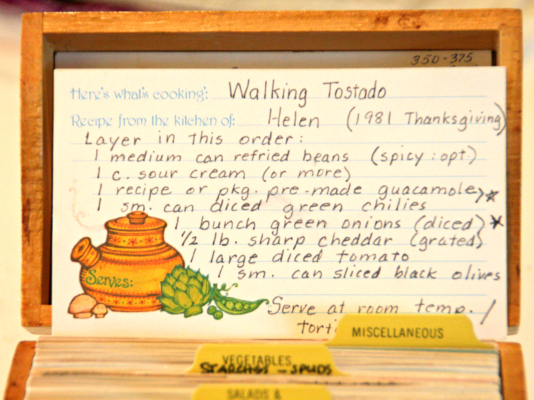 350-375
Here's what's cooking: Walking Tostado
Recipe from the kitchen of: Helen (1981 Thanksgiving)
Layer in this order:
1 medium can refried beans (spicy: opt)
1 c. sour cream (or more)
1 recipe or pkg. pre-made guacamole *
1 sm. can diced green chilies
1 bunch green onions (diced) *
1/2 lb. sharp cheddar (grated)
1 large diced tomato
1 sm. can sliced black olives
Serves:
Serve at room temp. /
MISCELLANEOUS
VEGETABLES
STARCHES - SPUDS
SALADS &